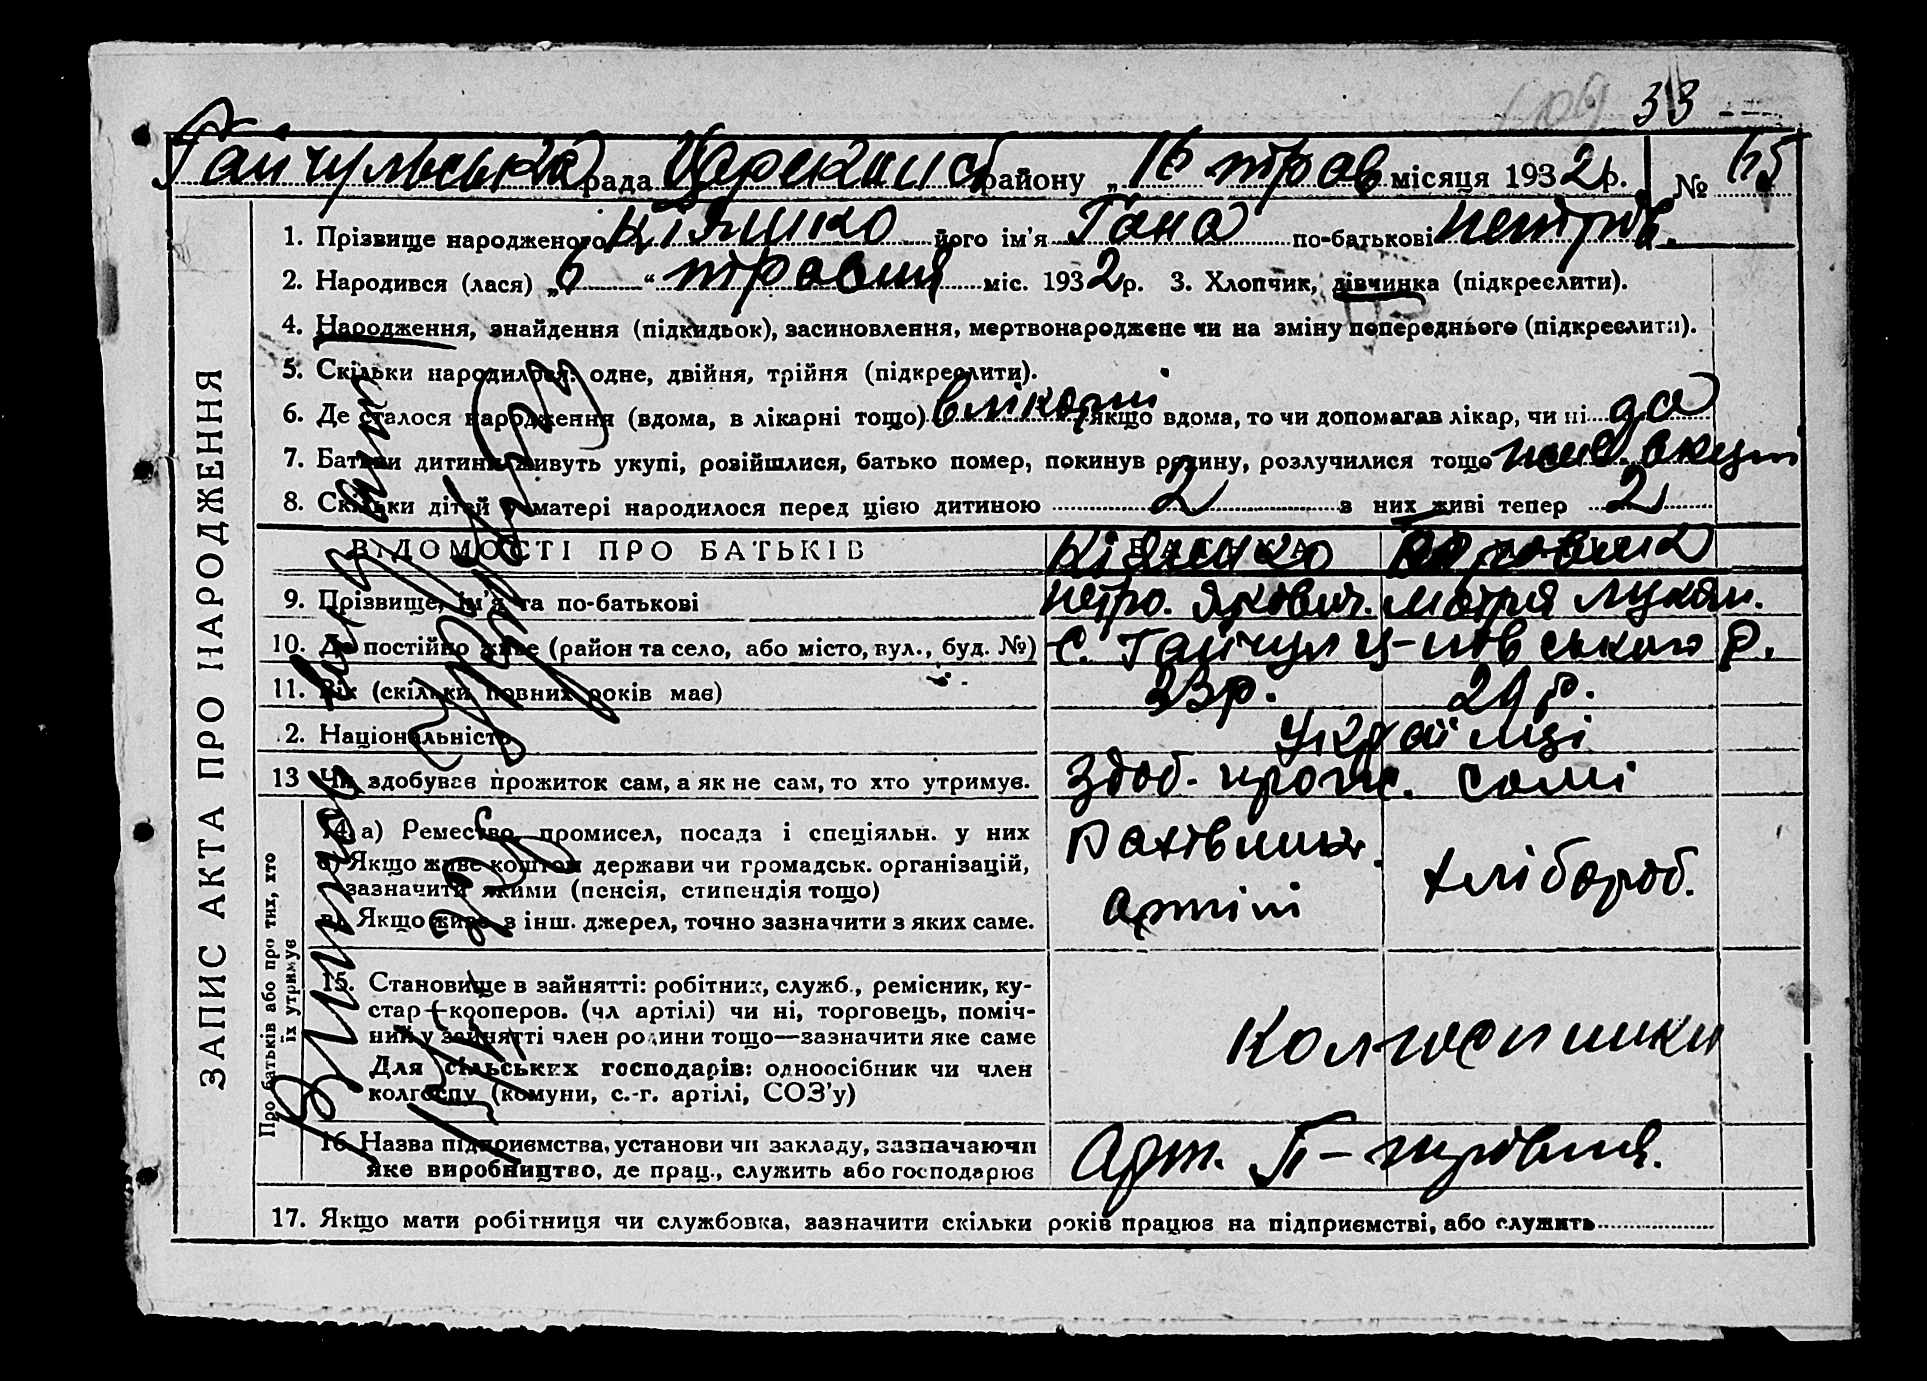 109 33
Гайчульська рада Царекона району „16 трав місяця 1932 р. № 65
ЗАПИС АКТА ПРО НАРОДЖЕННЯ
1. Прізвище народженого Кіяшко його ім'я Гана по-батькові Петрів.
2. Народився (лася) „6“ травня міс. 1932 р. 3. Хлопчик, дівчинка (підкреслити).
4. Народження, знайдення (підкидьок), засиновлення, мертвонароджене чи на зміну попереднього (підкреслити).
5. Скільки народилося: одне, двійня, трійня (підкреслити).
6. Де сталося народження (вдома, в лікарні тощо) в лікарні якщо вдома, то чи допомагав лікар, чи ні да
7. Батьки дитини живуть укупі, розійшлися, батько помер, покинув родину, розлучилися тощо
8. Скільки дітей у матері народилося перед цією дитиною 2 з них живі тепер 2
ВІДОМОСТІ ПРО БАТЬКІВ Кіяшко
9. Прізвище, ім'я та по-батькові Петро. Якович. Мотря Лукян.
10. Де постійно живе (район та село, або місто, вул., буд. №) с. Гайчул Ц-ков ського р.
11. Вік (скільки повних років має) 33 р. 29 р.
2. Національність Українці
13 Чи здобував прожиток сам, а як не сам, то хто утримує. Здоб. прож. самі
Про батьків або про тих, хто
їх утримує
14. а) Ремество, промисел, посада і спеціяльн. у них
б) Якщо живе коштом держави чи громадськ. організацій,
зазначити якими (пенсія, стипендія тощо)
в) Якщо живе з інш. джерел, точно зазначити з яких саме.
артілі
хлібороб.
15. Становище в зайнятті: робітник, служб., ремісник, ку-
стар-кооперов. (чл артілі) чи ні, торговець, поміч-
ний у зайнятті член родини тощо—зазначити яке саме
Для сільських господарів: одноосібник чи член
колгоспу (комуни, с.-г. артілі, СОЗ'у)
Колгоспники
16. Назва підприємства, установи чи закладу, зазначаючи
яке виробництво, де прац., служить або господарює
Арт.
17. Якщо мати робітниця чи службовка, зазначити скільки років працює на підприємстві, або служить